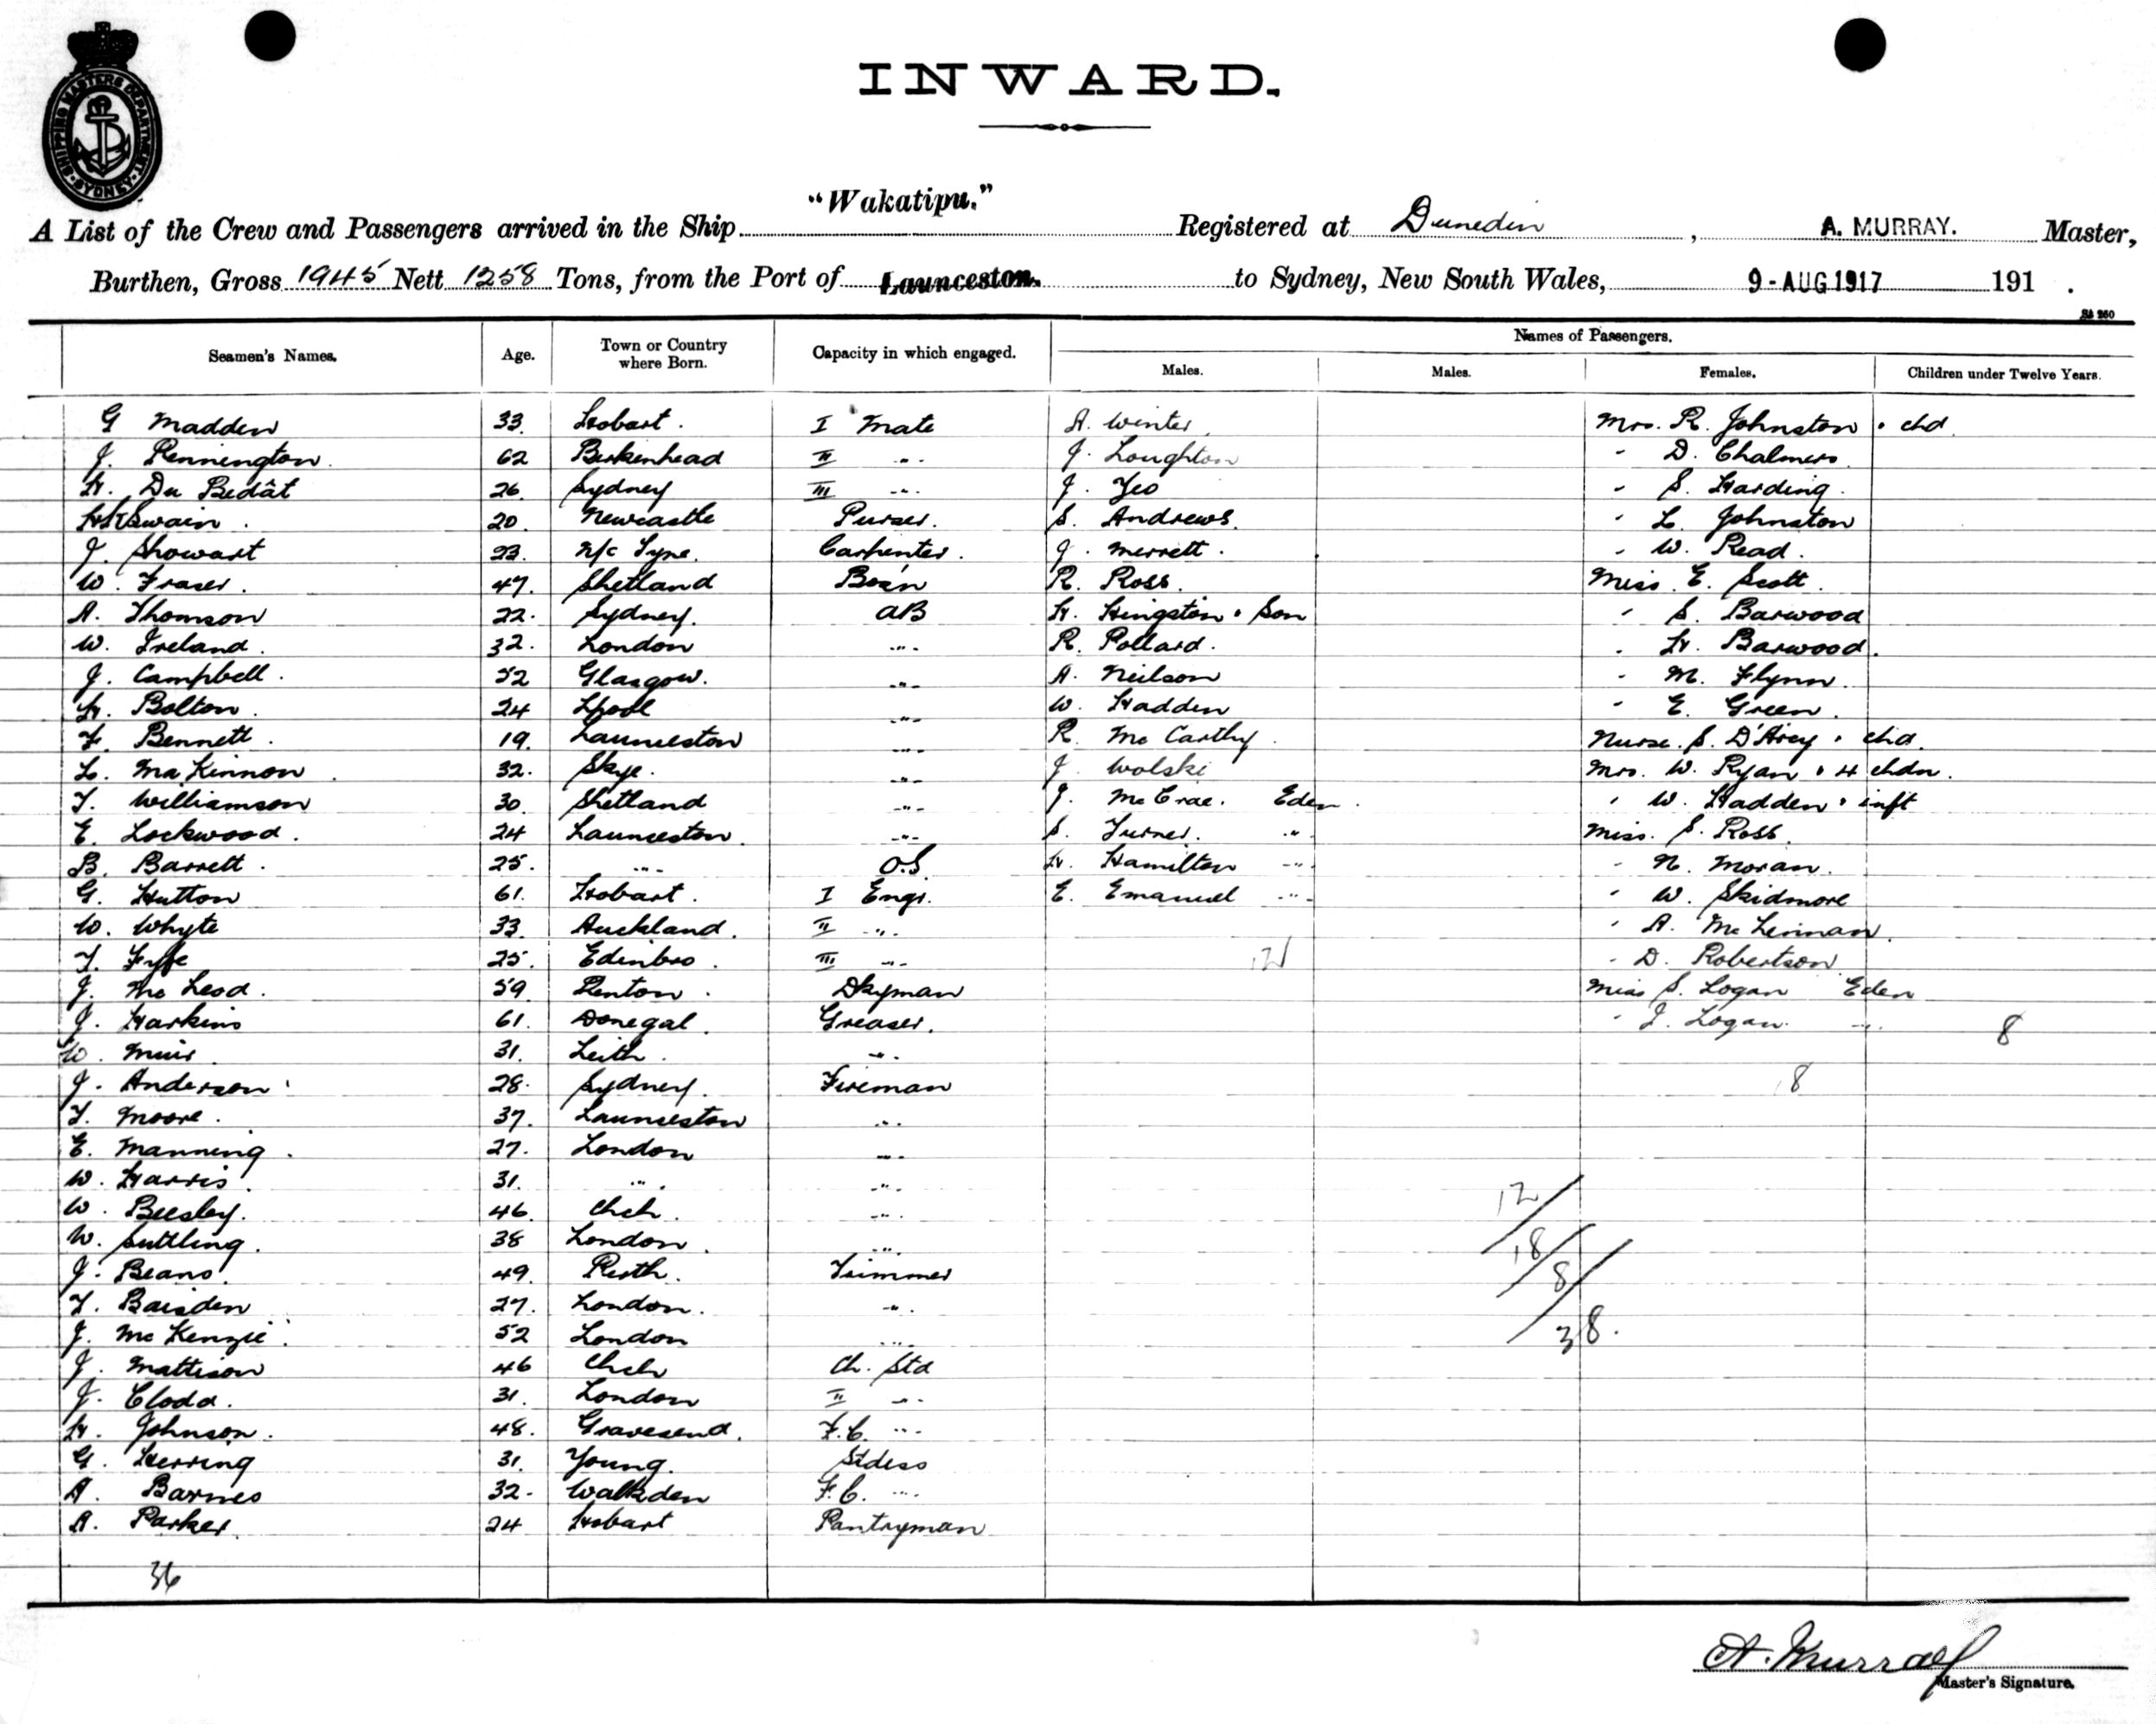 SHIPPING MASTERS DEPARTMENT. SYDNEY
INWARD.
"Wakatipu."
A List of the Crew and Passengers arrived in the Ship Registered at Dunedin, A. MURRAY. Master,
Burthen, Gross 1945 Nett 1258 Tons, from the Port of Launceston. to Sydney, New South Wales, 9-AUG 1917 191 .
Names of Passengers.
Seamen's Names. Age. Town or Country where Born. Capacity in which engaged. Males. Males. Females. Children under Twelve Years.
G Madden 33. Hobart. I Mate A. Winter. Mrs. R. Johnston + chd.
J. Pennington. 62 Birkenhead II -"- J. Loughton - D. Chalmers
H. Du Bedât 26. Sydney III -"- J. Yeo - S. Harding.
Swain. 20. Newcastle Purser. S. Andrews. - L. Johnston
J. Showart 23. N/c Tyne. Carpenter. J. Merrett. - W. Read.
W. Fraser. 47. Shetland Bos'n R. Ross. Miss. E. Scott.
A. Thomson 22. Sydney. AB H. Hingston + Son - S. Barwood
W. Ireland. 32. London -"- R. Pollard. - H. Barwood.
J. Campbell. 52 Glasgow. -"- A. Neilson - M. Flynn.
H. Bolton. 24 Lpool -"- W. Hadden - E. Green.
F. Bennett. 19. Launceston -"- R. McCarthy. Nurse. S. D'Arcy + chd.
L. MaKinnon. 32. Skye. -"- J. Wolski Mrs. W. Ryan + 4 chdn.
T. Williamson 30. Shetland -"- J. McCrae. Eden. - W. Hadden + inft
E. Lockwood. 24 Launceston. -"- S. Turner. -"- Miss. S. Ross.
B. Barrett. 25. -"- O.S. H. Hamilton -"- - N. Moran.
G. Hutton 61. Hobart. I Engr. E. Emanuel -"- - W. Skidmore
W. Whyte 33. Auckland. II -"- - A. McLennan.
T. Fyfe 25. Edinbro. III -"- 12 - D. Robertson
J. McLeod. 59 Renton. Dkyman Miss S. Logan Eden
J. Harkins 61. Donegal. Greaser. - J. Logan. -"- 8
W. Muir 31. Leith. -"-
J. Anderson. 28. Sydney. Fireman 18
T. Moore. 37. Launceston -"-
E. Manning. 27. London -"-
W. Harris. 31. -"- -"- 12
W. Beesley. 46. Chch. -"-
W. Suttling. 38 London. -"- 18
J. Beans. 49. Perth. Trimmer 8
T. Baisden 27. London. -"-
J. McKenzie. 52 London -"- 38.
J. Mattison 46 Chch Ch. Std
J. Clodd. 31. London II -"-
H. Johnson. 48. Gravesend. F.C. -"-
G. Herring 31. Young. Stdess
A. Barnes 32. Walkden F.C. -"-
A. Parker. 24 Hobart Pantryman
36
A. Murray
Master's Signature.